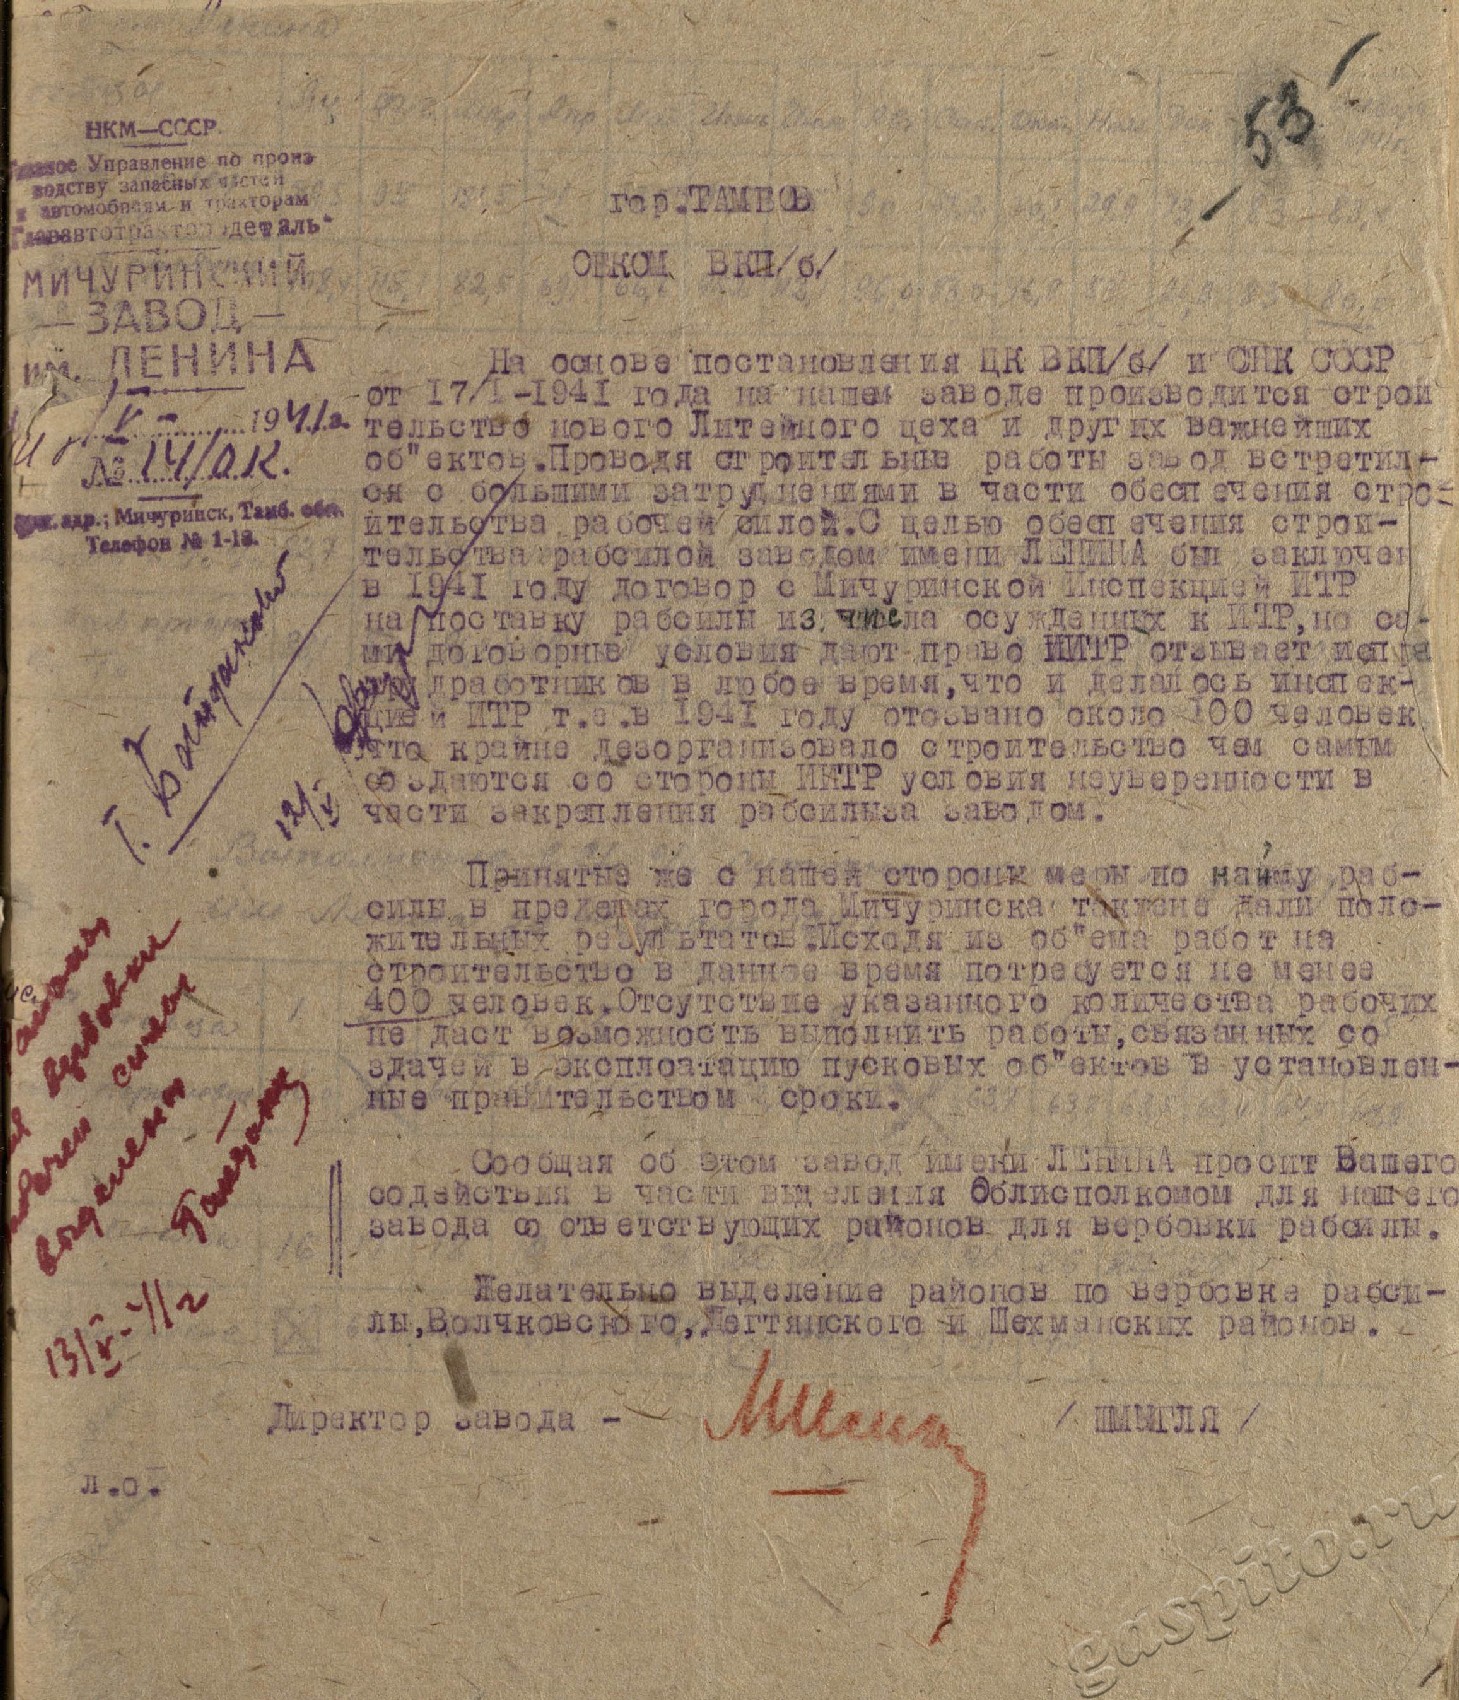 53
НКМ—СССР.
Главное Управление по произ-
водству запасных частей
к автомобилям и тракторам
"Глававтотрактородеталь"
МИЧУРИНСКИЙ
— ЗАВОД —
им. ЛЕНИНА
V 1941 г.
№ 14/О.К.
адр.: Мичуринск, Тамб. обл.
Телефон № 1-13.
гор.ТАМБОВ
ОБКОМ ВКП/б/
На основе постановления ЦК ВКП/б/ и СНК СССР
от 17/I-1941 года на нашем заводе производится строи
тельство нового Литейного цеха и других важнейших
об"ектов.Проводя строительные работы завод встретил-
ся с большими затруднениями в части обеспечения стро-
ительства рабочей силой.С целью обеспечения строи-
тельства рабсилой заводом имени ЛЕНИНА был заключен
в 1941 году договор с Мичуринской Инспекцией ИТР
на поставку рабсилы из числа осужденных к ИТР,но са-
ми договорные условия дают право ИИТР отзывает испра
дработников в любое время,что и делалось инспек-
цией ИТР т.е.в 1941 году отозвано около 100 человек
что крайне дезорганизовало строительство чем самым
создаются со стороны ИИТР условия неуверенности в
части закрепления рабсилыза заводом.
Принятые же с нашей стороны меры по найму раб-
силы в пределах города Мичуринска такжене дали поло-
жительных результатов.Исходя из об"ема работ на
строительство в данное время потребуется не менее
400 человек.Отсутствие указанного количества рабочих
не даст возможность выполнить работы,связанных со
здачей в эксплоатацию пусковых об"ектов в установлен-
ные правительством сроки.
Сообщая об этом завод имени ЛЕНИНА просит Вашего
содействия в части выделения Облисполкомом для нашего
завода соответствующих районов для вербовки рабсилы.
Желательно выделение районов по вербовке рабси-
лы,Волчковского,Дегтянского и Шехманских районов.
Директор завода - / ШМЫГЛЯ /
л.о.
12/V
вербовки
13/V-41 г
gaspito.ru